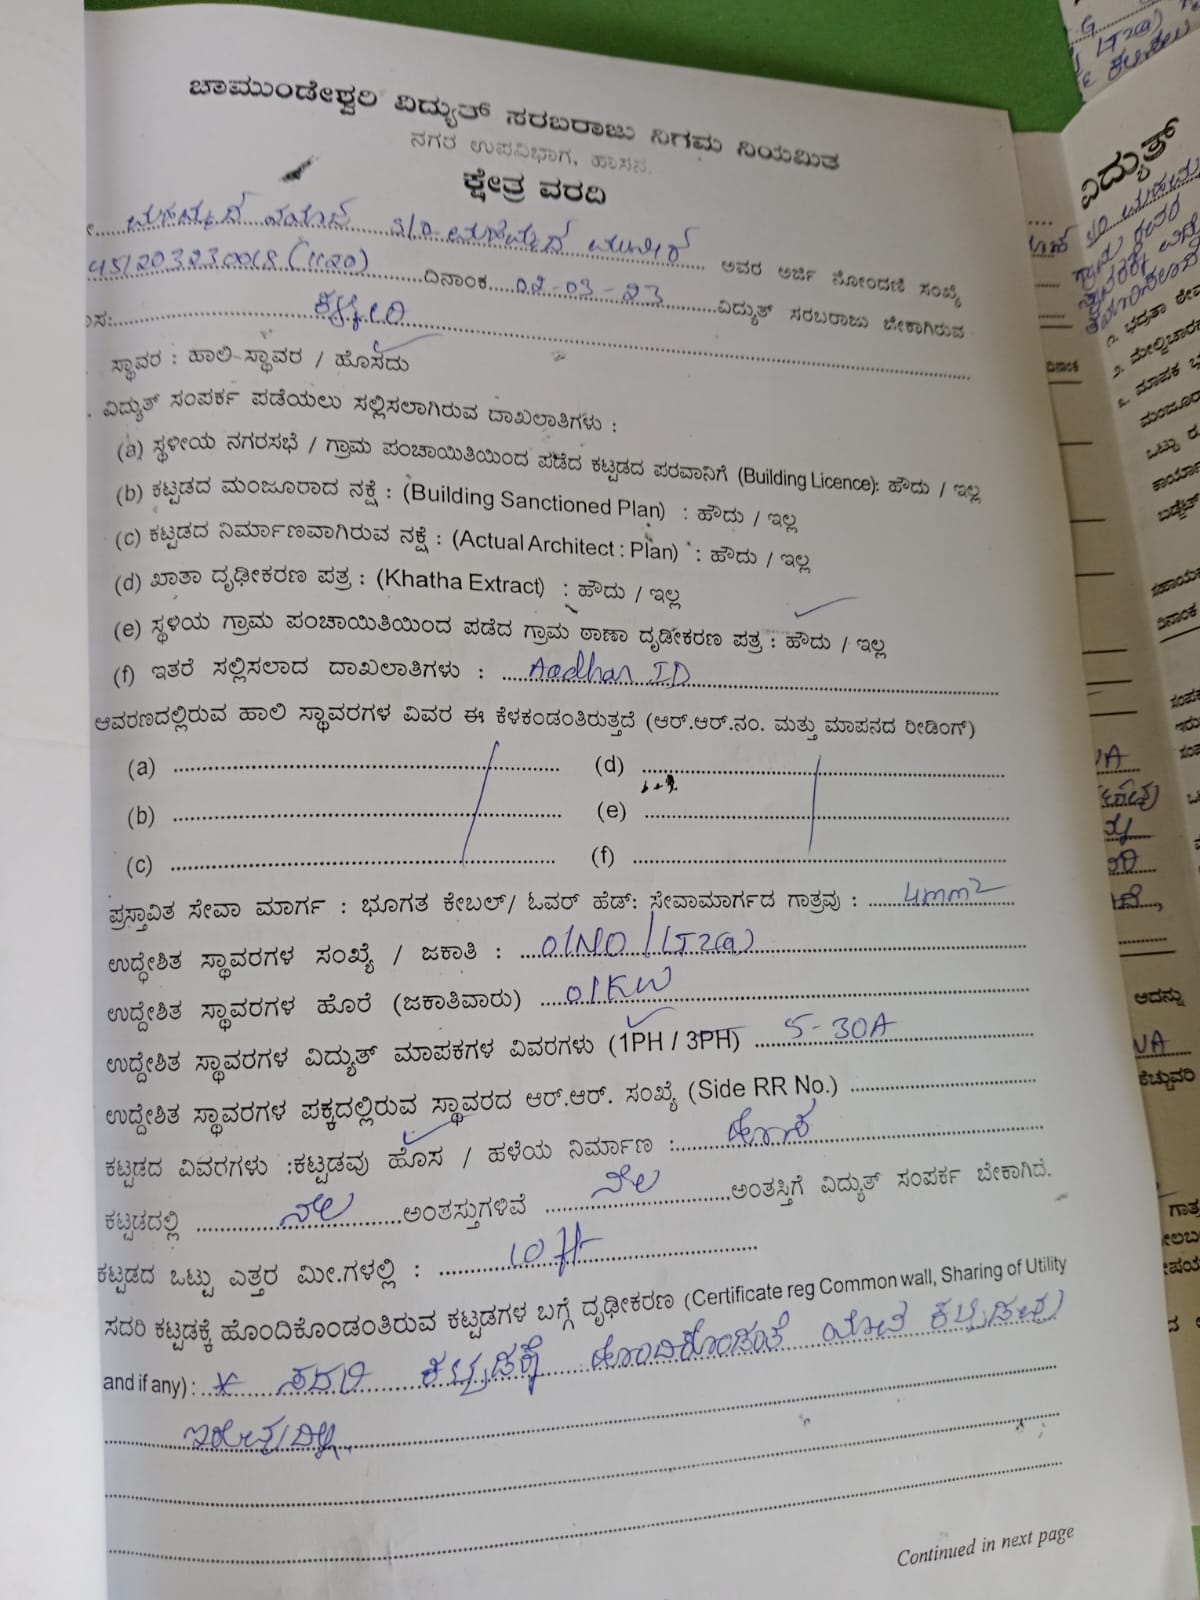 ಚಾಮುಂಡೇಶ್ವರಿ ವಿದ್ಯುತ್ ಸರಬರಾಜು ನಿಗಮ ನಿಯಮಿತ
ನಗರ ಉಪವಿಭಾಗ, ಹಾಸನ.
ಕ್ಷೇತ್ರ ವರದಿ
S/O ಅವರ ಅರ್ಜಿ ನೋಂದಣಿ ಸಂಖ್ಯೆ
ದಿನಾಂಕ 02-03-23 ವಿದ್ಯುತ್ ಸರಬರಾಜು ಬೇಕಾಗಿರುವ
ಸ್ಥಾವರ : ಹಾಲಿ ಸ್ಥಾವರ / ಹೊಸದು
ವಿದ್ಯುತ್ ಸಂಪರ್ಕ ಪಡೆಯಲು ಸಲ್ಲಿಸಲಾಗಿರುವ ದಾಖಲಾತಿಗಳು :
(a) ಸ್ಥಳೀಯ ನಗರಸಭೆ / ಗ್ರಾಮ ಪಂಚಾಯಿತಿಯಿಂದ ಪಡೆದ ಕಟ್ಟಡದ ಪರವಾನಿಗೆ (Building Licence): ಹೌದು / ಇಲ್ಲ
(b) ಕಟ್ಟಡದ ಮಂಜೂರಾದ ನಕ್ಷೆ : (Building Sanctioned Plan) : ಹೌದು / ಇಲ್ಲ
(c) ಕಟ್ಟಡದ ನಿರ್ಮಾಣವಾಗಿರುವ ನಕ್ಷೆ : (Actual Architect : Plan) : ಹೌದು / ಇಲ್ಲ
(d) ಖಾತಾ ದೃಢೀಕರಣ ಪತ್ರ : (Khatha Extract) : ಹೌದು / ಇಲ್ಲ
(e) ಸ್ಥಳಿಯ ಗ್ರಾಮ ಪಂಚಾಯಿತಿಯಿಂದ ಪಡೆದ ಗ್ರಾಮ ಠಾಣಾ ದೃಡೀಕರಣ ಪತ್ರ : ಹೌದು / ಇಲ್ಲ
(f) ಇತರೆ ಸಲ್ಲಿಸಲಾದ ದಾಖಲಾತಿಗಳು : Aadhar ID
ಆವರಣದಲ್ಲಿರುವ ಹಾಲಿ ಸ್ಥಾವರಗಳ ವಿವರ ಈ ಕೆಳಕಂಡಂತಿರುತ್ತದೆ (ಆರ್.ಆರ್.ನಂ. ಮತ್ತು ಮಾಪನದ ರೀಡಿಂಗ್)
(a) (d)
(b) (e)
(c) (f)
ಪ್ರಸ್ತಾವಿತ ಸೇವಾ ಮಾರ್ಗ : ಭೂಗತ ಕೇಬಲ್/ ಓವರ್ ಹೆಡ್: ಸೇವಾಮಾರ್ಗದ ಗಾತ್ರವು : 4mm2
ಉದ್ದೇಶಿತ ಸ್ಥಾವರಗಳ ಸಂಖ್ಯೆ / ಜಕಾತಿ : 01NO / LT2(a)
ಉದ್ದೇಶಿತ ಸ್ಥಾವರಗಳ ಹೊರೆ (ಜಕಾತಿವಾರು) 01KW
ಉದ್ದೇಶಿತ ಸ್ಥಾವರಗಳ ವಿದ್ಯುತ್ ಮಾಪಕಗಳ ವಿವರಗಳು (1PH / 3PH) 5-30A
ಉದ್ದೇಶಿತ ಸ್ಥಾವರಗಳ ಪಕ್ಕದಲ್ಲಿರುವ ಸ್ಥಾವರದ ಆರ್.ಆರ್. ಸಂಖ್ಯೆ (Side RR No.)
ಕಟ್ಟಡದ ವಿವರಗಳು :ಕಟ್ಟಡವು ಹೊಸ / ಹಳೆಯ ನಿರ್ಮಾಣ : ಹೊಸ
ಕಟ್ಟಡದಲ್ಲಿ ನೆಲ ಅಂತಸ್ತುಗಳಿವೆ ನೆಲ ಅಂತಸ್ತಿಗೆ ವಿದ್ಯುತ್ ಸಂಪರ್ಕ ಬೇಕಾಗಿದೆ.
ಕಟ್ಟಡದ ಒಟ್ಟು ಎತ್ತರ ಮೀ.ಗಳಲ್ಲಿ : 10 ft
ಸದರಿ ಕಟ್ಟಡಕ್ಕೆ ಹೊಂದಿಕೊಂಡಂತಿರುವ ಕಟ್ಟಡಗಳ ಬಗ್ಗೆ ದೃಢೀಕರಣ (Certificate reg Common wall, Sharing of Utility
and if any) : * ಸದರಿ ಕಟ್ಟಡಕ್ಕೆ ಹೊಂದಿಕೊಂಡಂತೆ ಯಾವ ಕಟ್ಟಡಳು
ಇರುವುದಿಲ್ಲ.
Continued in next page
ವಿದ್ಯುತ್